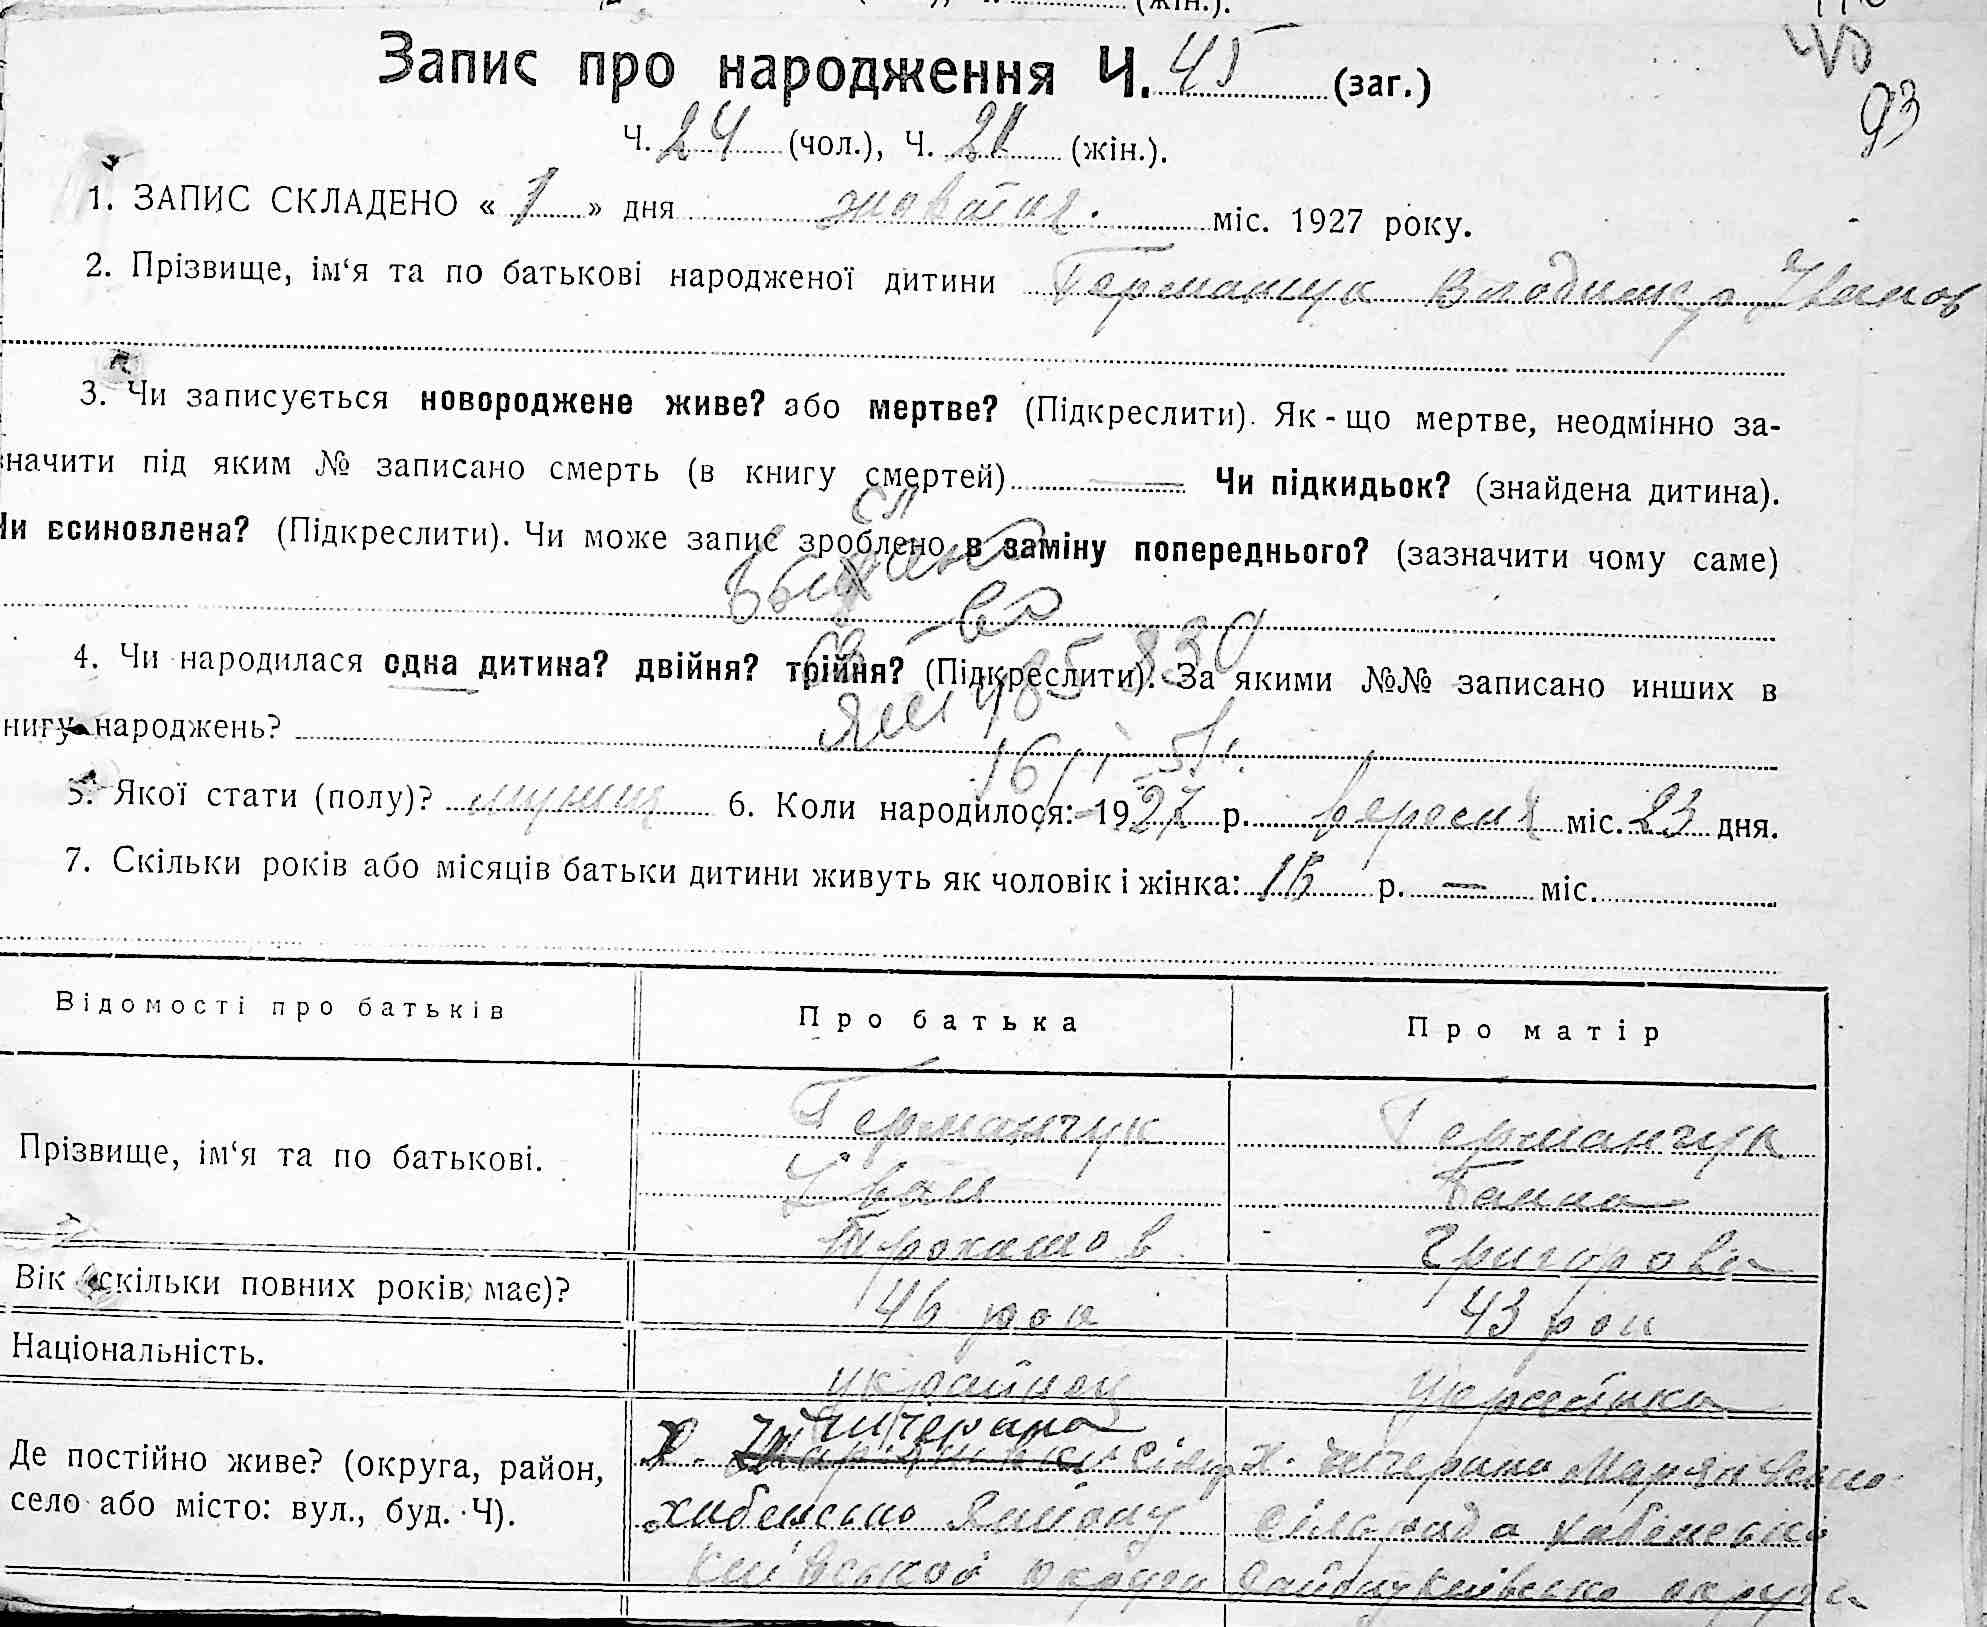 Запис про народження Ч. 45 (заг.)
93
Ч. 24 (чол.), Ч. 21 (жін.).
1. ЗАПИС СКЛАДЕНО « 1 » дня жовтня міс. 1927 року.
2. Прізвище, ім‘я та по батькові народженої дитини Германчук Володимир Іванов
3. Чи записується новороджене живе? або мертве? (Підкреслити). Як-що мертве, неодмінно за-
значити під яким № записано смерть (в книгу смертей) — Чи підкидьок? (знайдена дитина).
Чи всиновлена? (Підкреслити). Чи може запис зроблено в заміну попереднього? (зазначити чому саме)
св-во
4. Чи народилася одна дитина? двійня? трійня? (Підкреслити). За якими №№ записано инших в
книгу народжень?
5. Якої стати (полу)? 6. Коли народилося: 1927 р. вересня міс. 23 дня.
7. Скільки років або місяців батьки дитини живуть як чоловік і жінка: р. — міс.
Відомості про батьків Про батька Про матір
Прізвище, ім‘я та по батькові. Германчук Германчук
Іван Ганна
Трохимов Григоровна
Вік (скільки повних років має)? 46 рок 43 рок
Національність. українец Українка
Де постійно живе? (округа, район,
село або місто: вул., буд. Ч).
х. Чичерина х. Чичерина
Хабенсько Району Сільрада Хабенсько
Київської округи Району Київсько округи